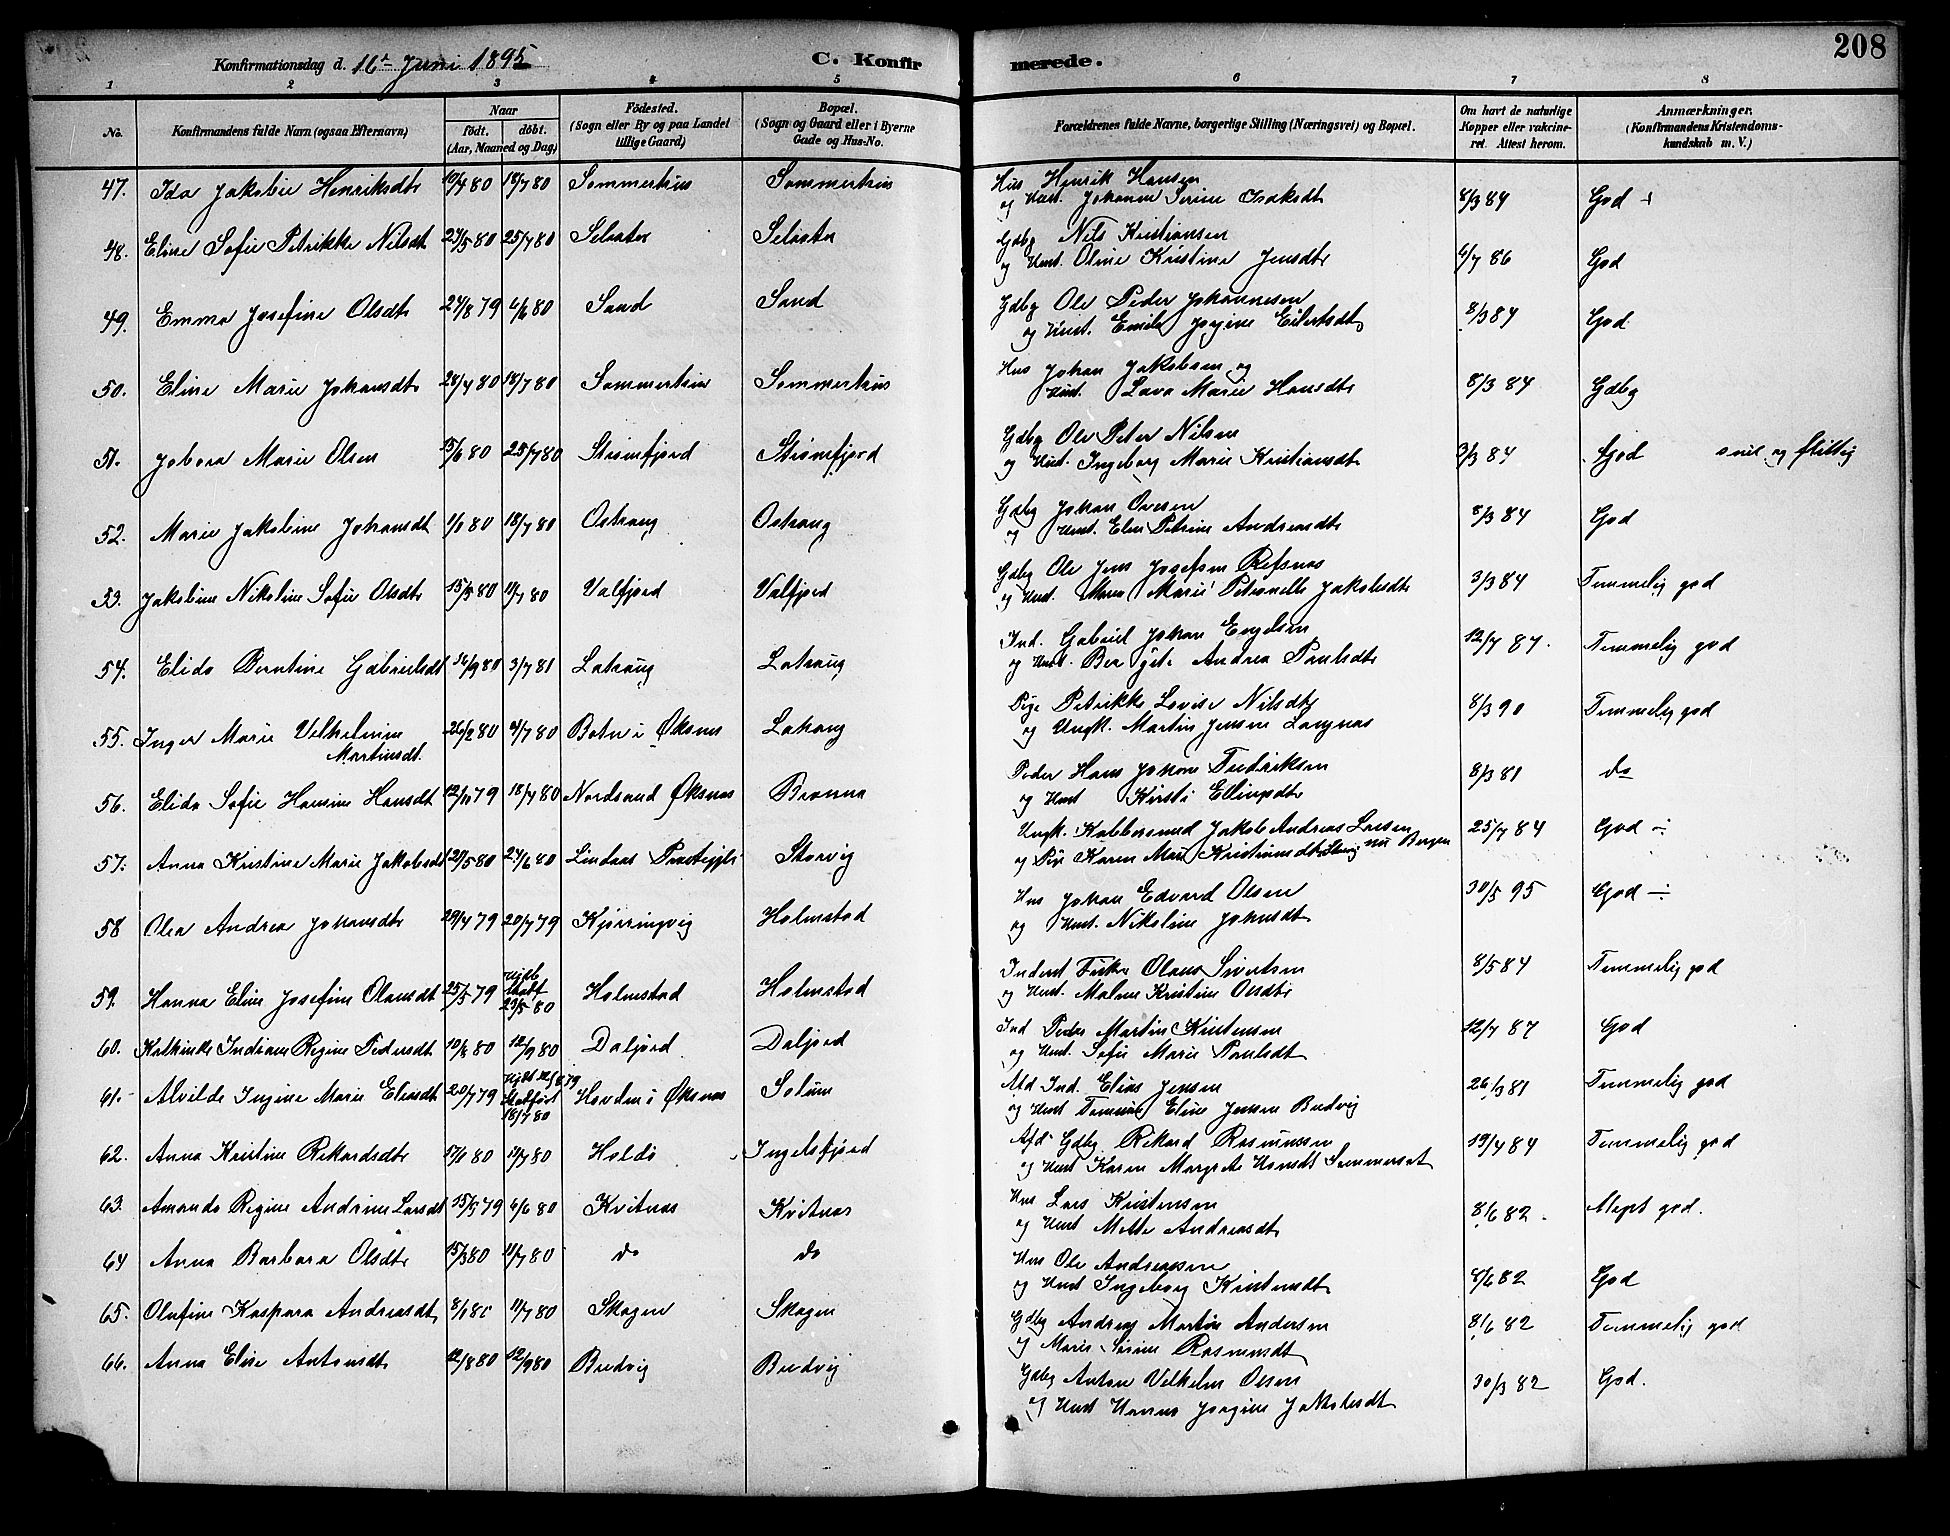 208
Konfirmationsdag d. 16de Juni 1895. C. Konfirmerede.
1 2 3 4 5 6 7 8
No. Konfirmandens fulde Navn (ogsaa Efternavn) Naar født. døbt. (Aar, Maaned og Dag) Fødested. (Sogn eller By og paa Landet tillige Gaard) Bopæl. (Sogn og Gaard eller i Byerne Gade og Hus-No. Forældrenes fulde Navne, borgerlige Stilling (Næringsvei) og Bopæl. Om havt de naturlige Kopper eller vakcineret. Attest herom. Anmærkninger. (Konfirmandens Kristendomskundskab m. V.)
47. Ida Jakobie Henriksdtr 19/4 80 18/7 80 Sommerhus Sommerhus Hus Henrik Hansen 8/3 84 God
og Hust. Johanne Serine Isaksdt
48. Eline Sofie Petrikke Nilsdt 24/5 80 25/7 80 Selaater Selaater Gdbg Nils Kristiansen 6/7 86 God
og Hust. Oline Kristine Jensdtr
49. Emma Josefine Olsdtr 24/8 79 4/6 80 Sand Sand Gdbg Ole Peder Johannesen 8/3 84 God
og Hust. Emilie Jørgine Eilertsdt
50. Eline Marie Johansdtr 28/4 80 18/7 80 Sommerhus Sommerhus Hus Johan Jakobsen og 8/3 84 Gdbg
Hust. Lava Marie Hansdtr
51. Jobora Marie Olsen 15/6 80 25/7 80 Strømfjord Strømfjord Gdbg Ole Peter Nilsen 3/3 84 God snil og flittig
og Hust. Ingeborg Marie Kristiansdt
52. Marie Jakobine Johansdt 1/1 80 18/7 80 Gdbg Johan Ovesen 8/3 84 God
og Hust. Elen Petrine Andreasdtr
53. Jakobine Nikoline Sofie Olsdtr 15/5 80 11/7 80 Valfjord Valfjord Gdbg Ole Jens Josefsen Refsnæs 3/3 84 Temmelig god
og Hust. Maren Marie Petronelle Jakobsdtr
54. Elida Berntine Gabrielsdt 14/9 80 3/7 81 Ind. Gabriel Johan Engelsen 12/7 87. Temmelig god
og Hust. Andrea Paulsdtr
55. Inger Marie Vilhelmine 26/2 80 4/7 80 Botn i Øksnes Pige Petrikke Lovise Nilsdtr 8/3 90 Temmelig god
Martinsdt. og Ungk. Martin Jensen Langnæs
56. Elida Sofie Hansine Hansdt 12/11 79 18/7 80 Nordsand Øksnæs Peder Hans Johan Fredriksen 8/3 81 do
og Hust Kirsti Ellingsdtr
57. Anna Kristine Marie Jakobsdt 12/5 80 27/6 80 Lindaas Storvig Ungk. Kobbersmed Jakob Andreas Larsen 25/7 84 God ÷
og Pige Karen Marie Kristiansdtr nu Bergen
58 Olea Andrea Johansdtr 29/4 79 20/7 79 Kjørringvig Holmstad Hus Johan Edvard Olsen 30/5 95 God ÷
og Hust. Nikoline Johnsdt
59. Hanna Eline Josefine Olausdt 25/5 79 23/5 80 Holmstad Holmstad Inderst Fisker Olaus Sivertsen 8/5 84 Temmelig god
og Hust. Malene Kristine Olsdtr
60. Indiane Regine Pedersdt 10/8 80 12/9 80 Daljord Daljord Ind Peder Martin Kristensen 12/7 87 God
og Hust. Sofie Marie Paulsdt
61. Alvilde Ingine Marie Eliasdt 20/7 79 18/7 80 Hovden i Øksnæs Solum Afd Ind. Elias Jensen 26/3 81 Temmelig god
og Hust Eline Jensen Budvig
62. Anna Kristine Rikardsdtr 17/1 80 11/7 80 Holdø Ingelsfjord Afd. Gdbg Rikard Rasmussen 19/4 84 Temmelig god
og Hust Karen Margrete Hansdt Sommerset
63. Amanda Regine Andrine Larsdt 15/5 79 4/6 80 Kvitnæs Kvitnæs Hus Lars Kristensen 8/6 82 Meget god.
og Hust Mette Andreasdt
64 Anna Barbara Olsdtr 15/3 80 11/7 80 do do Hus Ole Andreassen 8/6 82 God
og Hust Ingeborg Kristensdt
65. Olufine Kaspara Andreasdt 8/1 80 11/7 80 Skagen Skagen Gdbg Andreas Martin Andersen 8/6 82 Temmelig god
og Marie Sørine Rasmusdt
66. Anna Elise Antonsdtr 12/8 80 12/9 80 Budvig Budvig Gdbg Anton Vilhelm Olsen 30/3 82 God.
og Hust Hanna Jørgine Jakobsdt